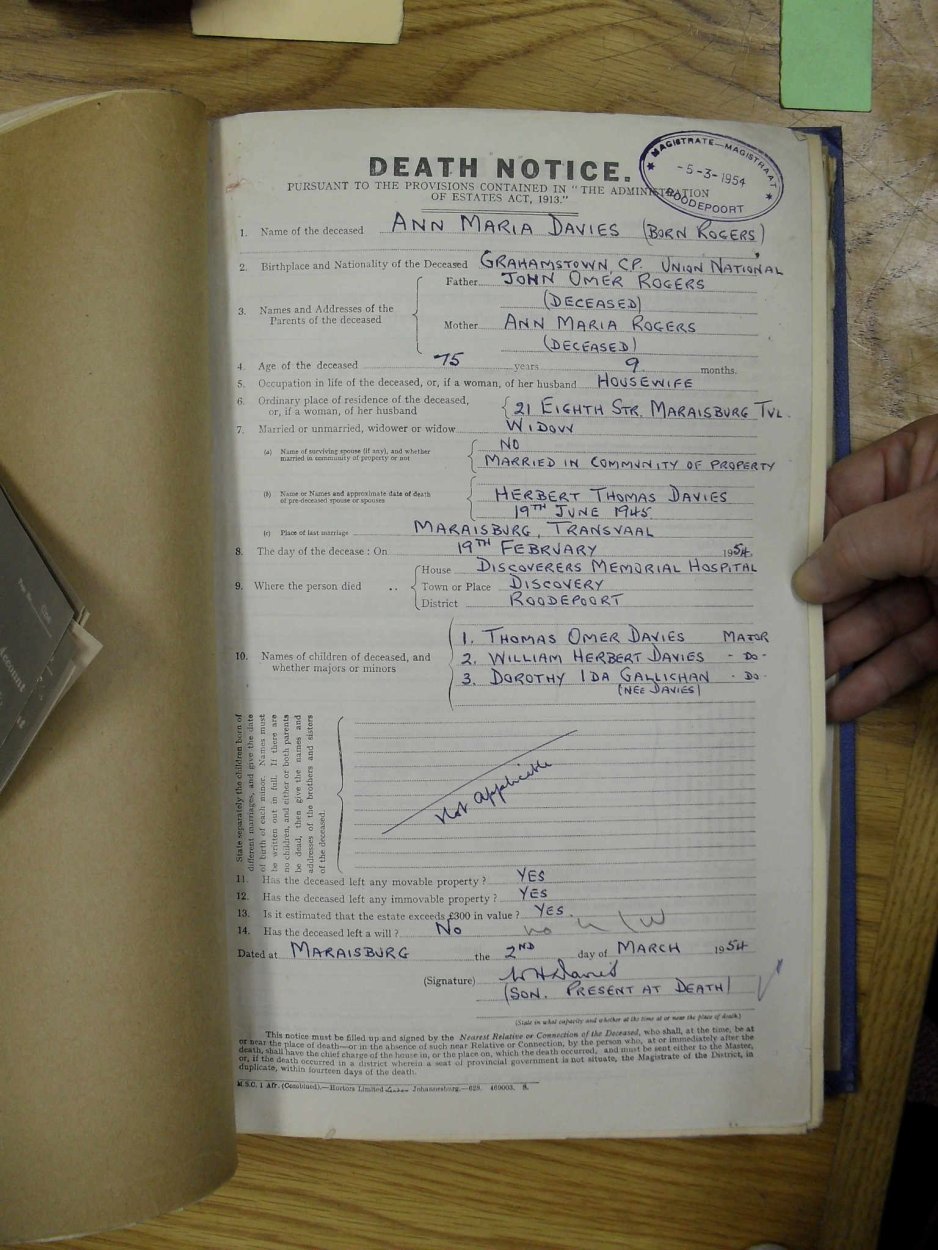 DEATH NOTICE.
PURSUANT TO THE PROVISIONS CONTAINED IN "THE ADMINISTRATION
OF ESTATES ACT, 1913."
MAGISTRATE—MAGISTRAAT
-5-3-1954
ROODEPOORT
1. Name of the deceased ANN MARIA DAVIES (BORN ROGERS)
2. Birthplace and Nationality of the Deceased GRAHAMSTOWN, C.P. UNION NATIONAL
3. Names and Addresses of the Parents of the deceased
Father JOHN OMER ROGERS
(DECEASED)
Mother ANN MARIA ROGERS
(DECEASED)
4. Age of the deceased 75 years 9 months.
5. Occupation in life of the deceased, or, if a woman, of her husband HOUSEWIFE
6. Ordinary place of residence of the deceased,
or, if a woman, of her husband 21 EIGHTH STR. MARAISBURG TVL.
7. Married or unmarried, widower or widow WIDOW
(a) Name of surviving spouse (if any), and whether
married in community of property or not
NO
MARRIED IN COMMUNITY OF PROPERTY
(b) Name or Names and approximate date of death
of pre-deceased spouse or spouses
HERBERT THOMAS DAVIES
19TH JUNE 1945.
(c) Place of last marriage MARAISBURG, TRANSVAAL
8. The day of the decease : On 19TH FEBRUARY 1954.
9. Where the person died ..
House DISCOVERERS MEMORIAL HOSPITAL
Town or Place DISCOVERY
District ROODEPOORT
10. Names of children of deceased, and
whether majors or minors
1. THOMAS OMER DAVIES MAJOR
2. WILLIAM HERBERT DAVIES - DO -
3. DOROTHY IDA GALLICHAN - DO -
(NEE DAVIES)
State separately the children born of
different marriages, and give the date
of birth of each minor. Names must
be written out in full. If there are
no children, and either or both parents
be dead, then give the names and
addresses of the brothers and sisters
of the deceased.
Not Applicable
11. Has the deceased left any movable property ? YES
12. Has the deceased left any immovable property ? YES
13. Is it estimated that the estate exceeds £300 in value ? YES.
14. Has the deceased left a will ? NO no
Dated at MARAISBURG the 2ND day of MARCH 1954
(Signature) W H Davies
(SON. PRESENT AT DEATH)
(State in what capacity and whether at the time at or near the place of death.)
This notice must be filled up and signed by the Nearest Relative or Connection of the Deceased, who shall, at the time, be at
or near the place of death—or in the absence of such near Relative or Connection, by the person who, at or immediately after the
death, shall have the chief charge of the house in, or the place on, which the death occurred, and must be sent either to the Master,
or, if the death occurred in a district wherein a seat of provincial government is not situate, the Magistrate of the District, in
duplicate, within fourteen days of the death.
M.S.C. 1 Afr. (Combined).—Hortors Limited Johannesburg.—628. 469003. S.
Account